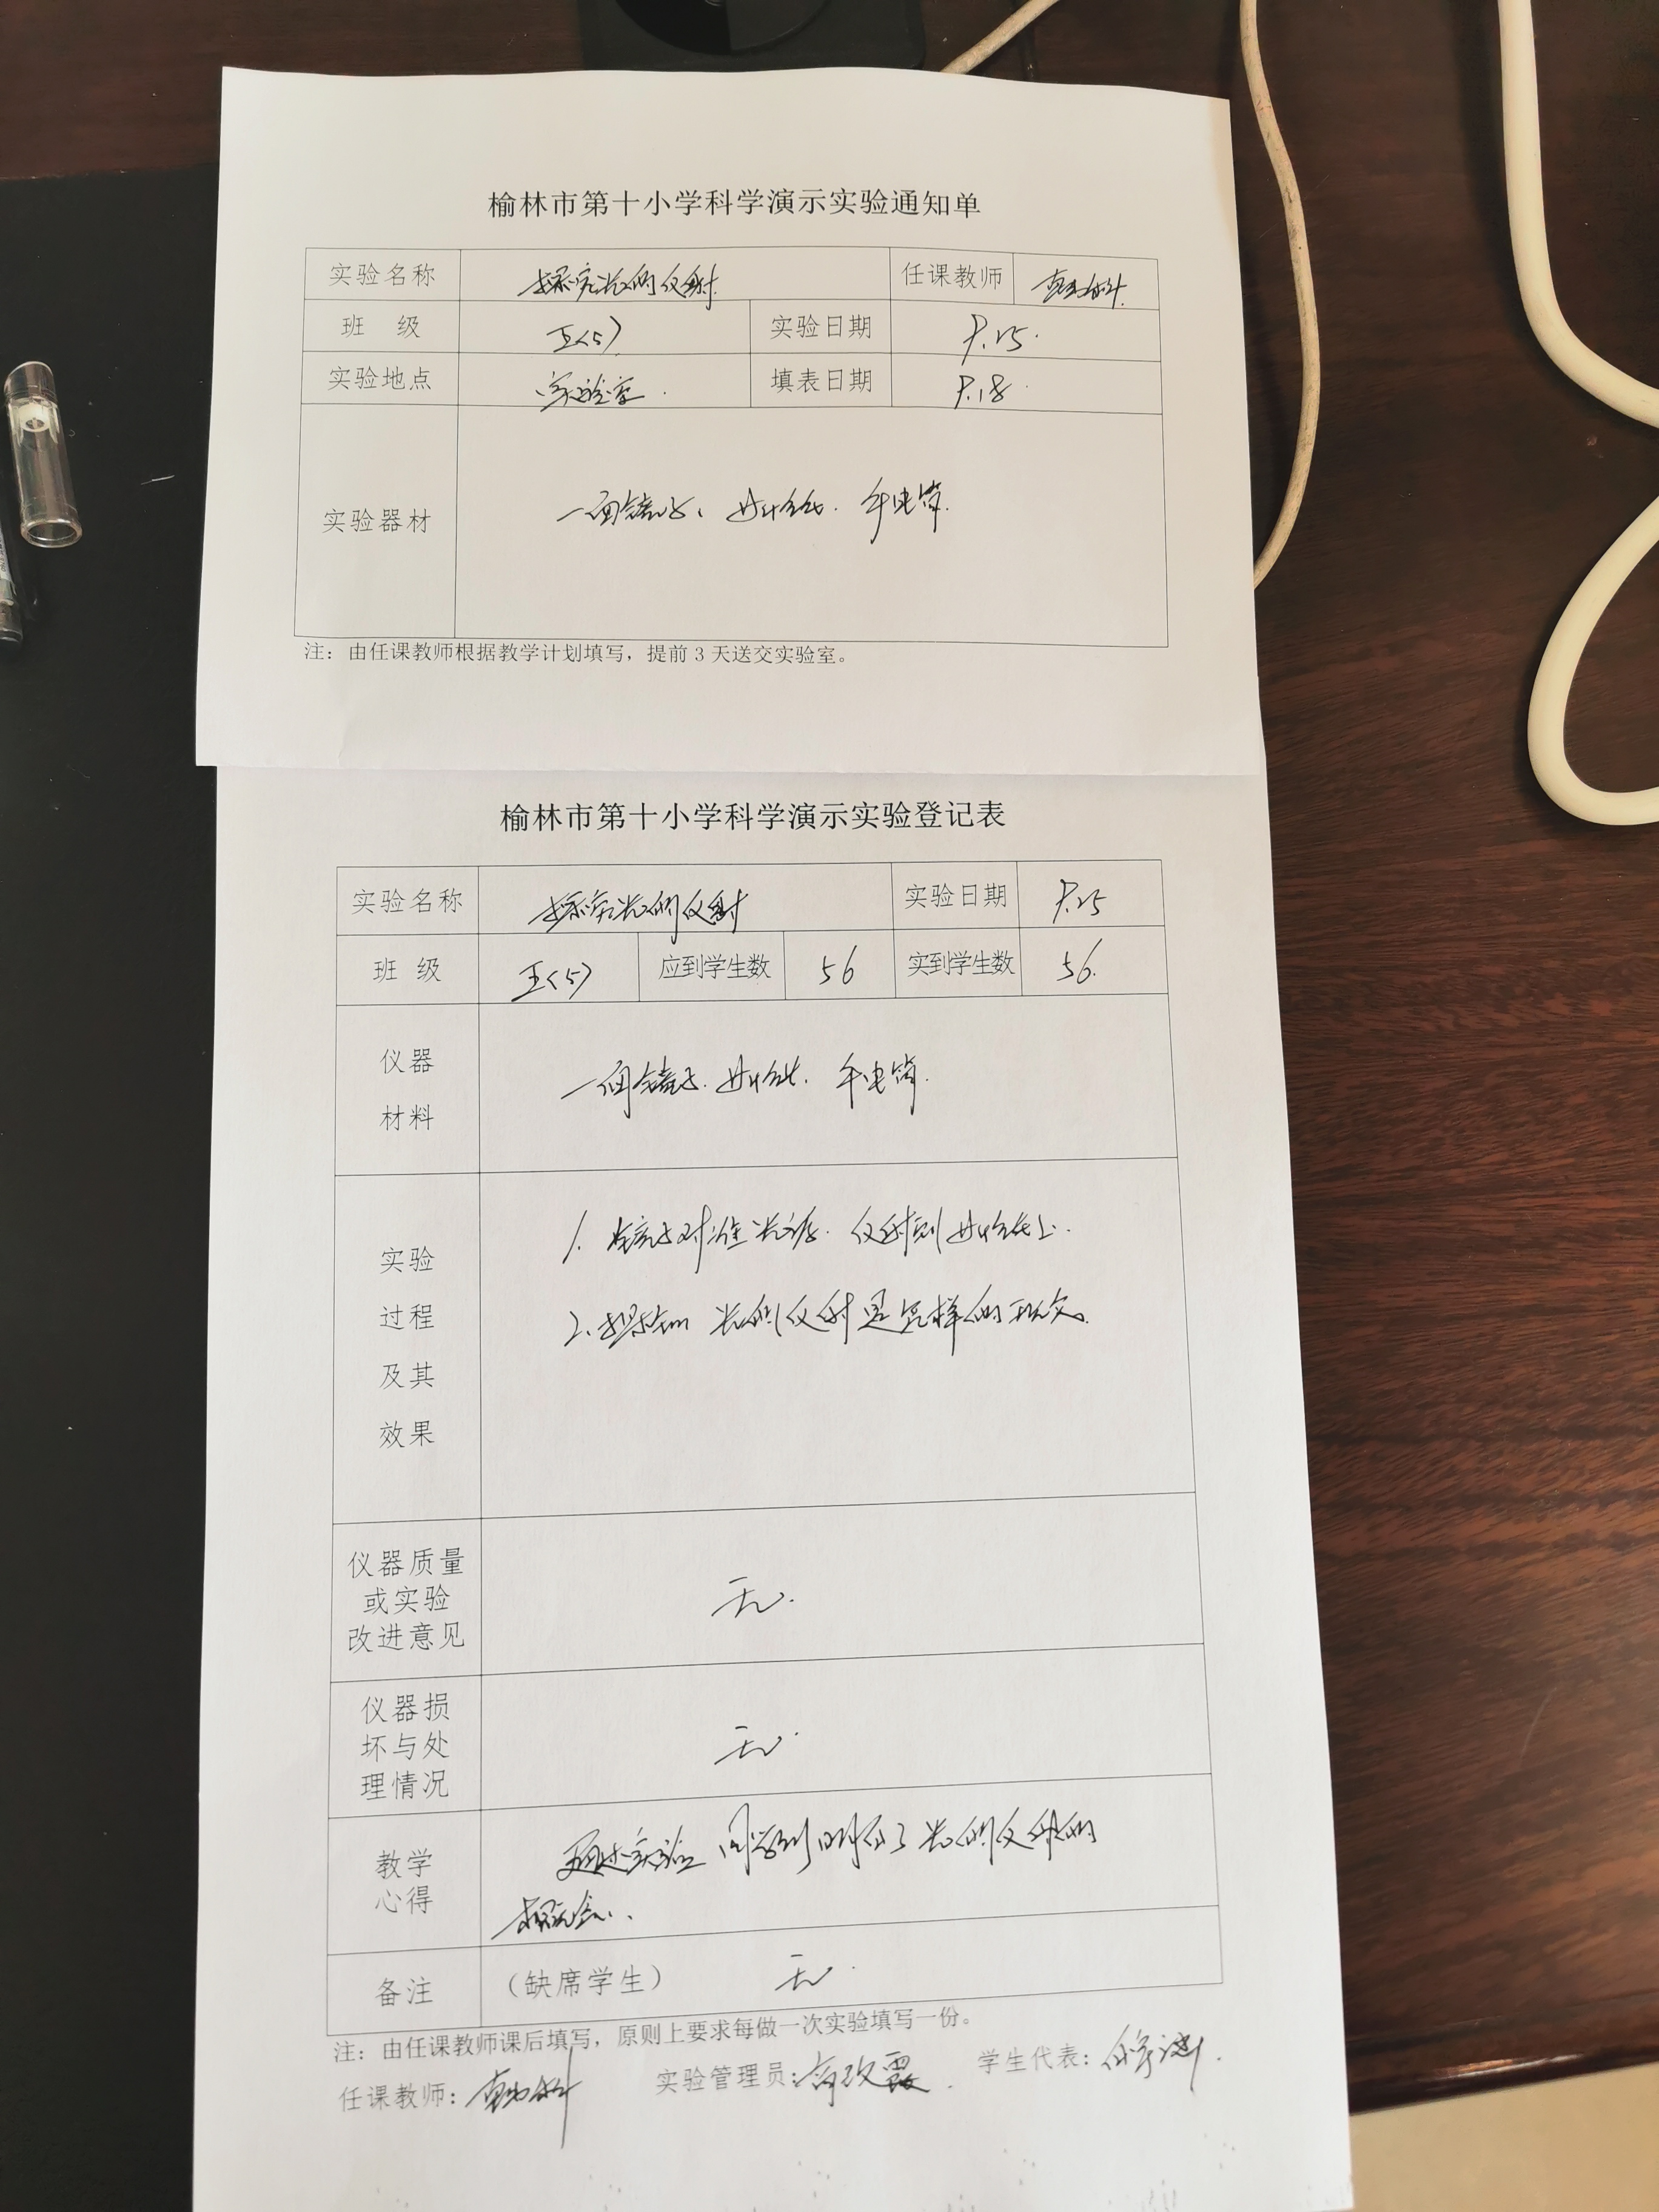 榆林市第十小学科学演示实验通知单
实验名称 探究光的反射 任课教师
班 级 五(5) 实验日期 9.25.
实验地点 实验室. 填表日期 9.18.
实验器材 一面镜子、 手电筒.
注：由任课教师根据教学计划填写，提前 3 天送交实验室。
榆林市第十小学科学演示实验登记表
实验名称 探究光的反射 实验日期 9.25
班 级 五(5) 应到学生数 56 实到学生数 56.
仪器
材料
一面镜子. 手电筒.
实验
过程
及其
效果
1. 镜子对准光源. 反射到
2. 光的反射是怎样的现象.
仪器质量
或实验
改进意见
无.
仪器损
坏与处
理情况
无.
教学
心得
通过实验 同学们明白了光的反射的
备注 （缺席学生） 无.
注：由任课教师课后填写，原则上要求每做一次实验填写一份。
任课教师： 实验管理员：高改霞. 学生代表：